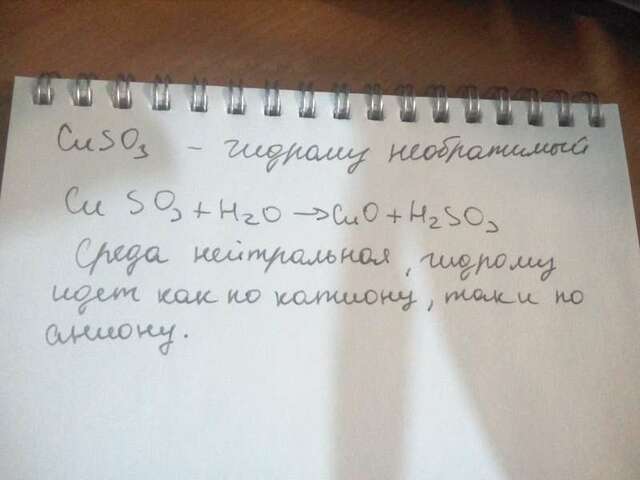 CuSO3 - гидролиз необратимый
Cu SO3 + H2O → CuO + H2SO3
Среда нейтральная, гидролиз
идет как по катиону, так и по
аниону.